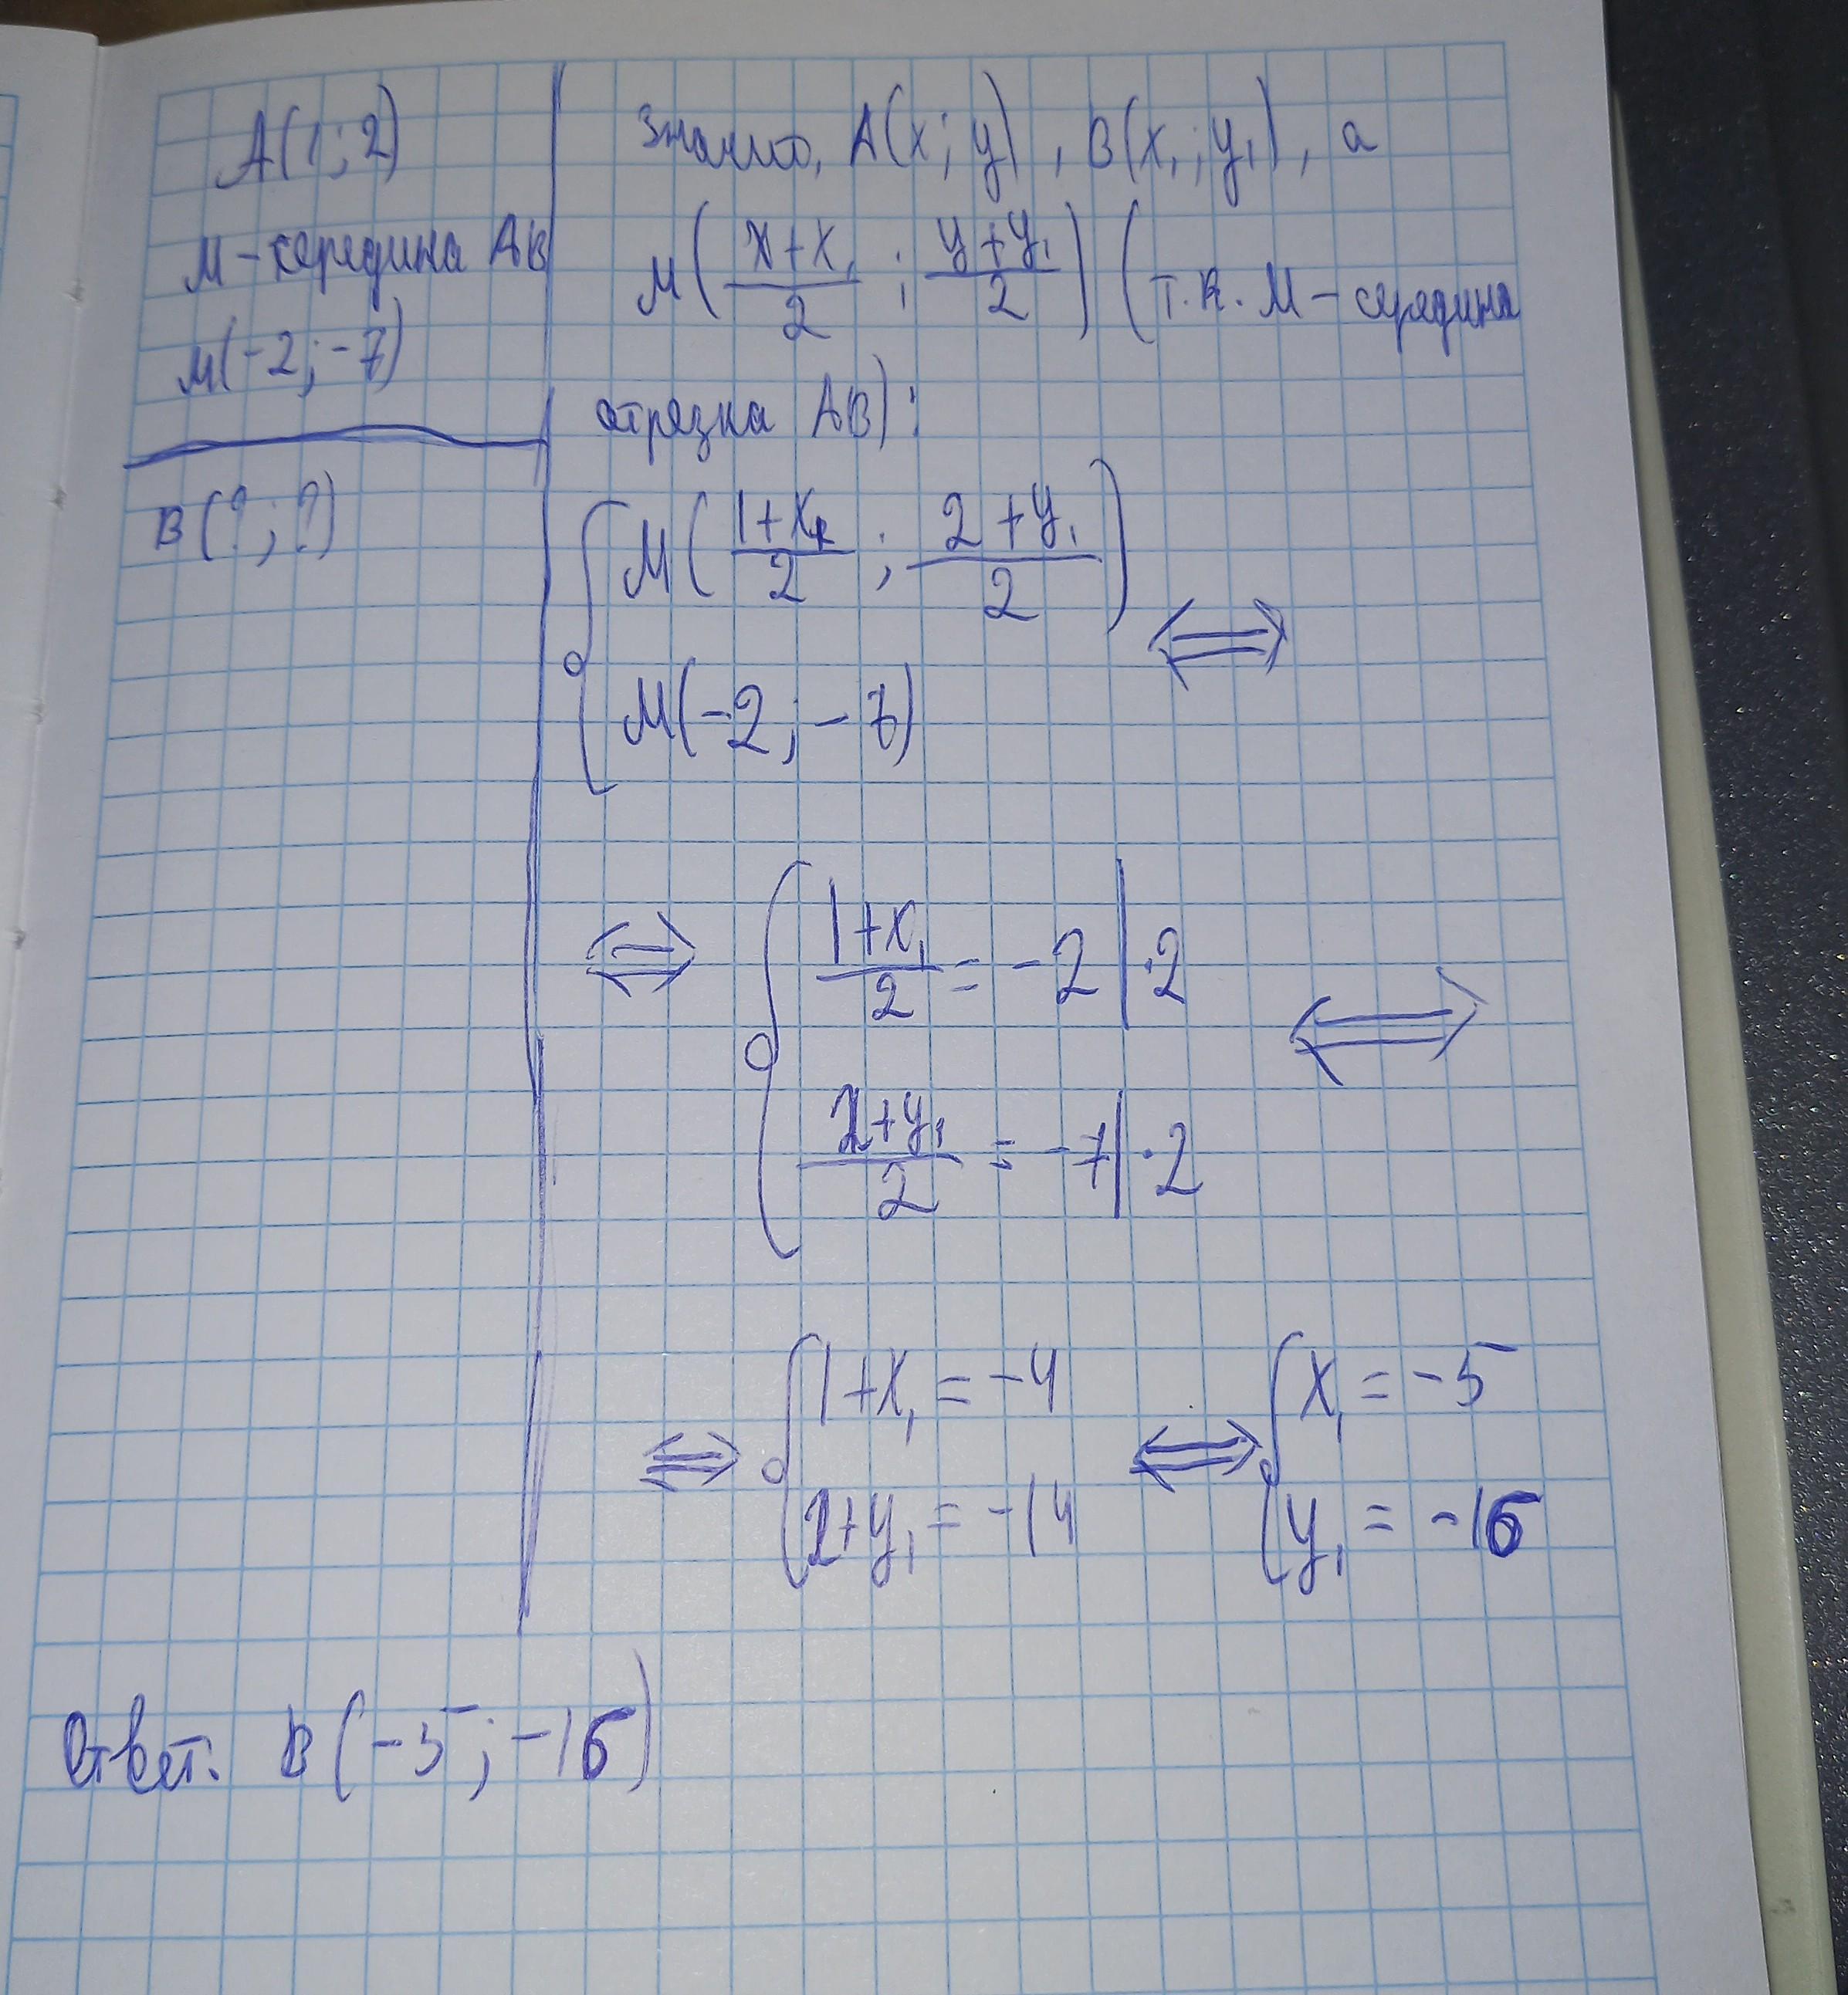 A(1;2)
M-середина AB
M(-2;-7)
B(?;?)
Значит, A(x;y), B(x₁;y₁), а
M((x+x₁)/2 ; (y+y₁)/2) (т.к. M-середина
отрезка AB):
{ M((1+x₁)/2 ; (2+y₁)/2)
M(-2;-7) ⇔
⇔ { (1+x₁)/2 = -2 | ·2
(2+y₁)/2 = -7 | ·2 ⇔
⇔ { 1+x₁ = -4 ⇔ { x₁ = -5
2+y₁ = -14 y₁ = -16
Ответ. B(-5;-16)